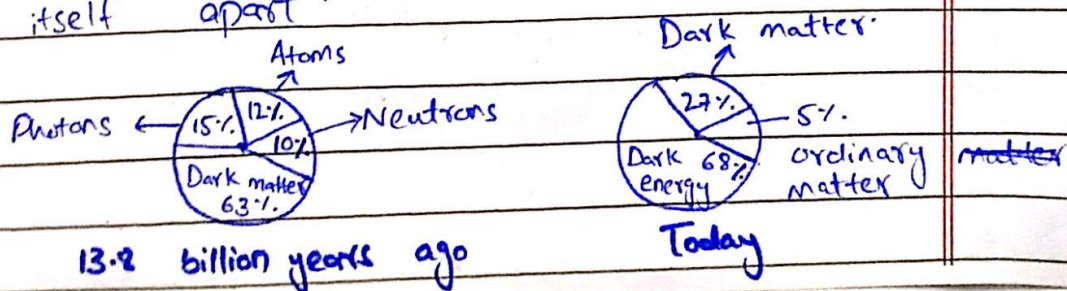 itself apart
Atoms
Photons
15%.
12%.
10%.
Neutrons
Dark matter
63%.
13.8 billion years ago
Dark matter
27%.
5%.
ordinary matter
matter
Dark energy
68%
Today